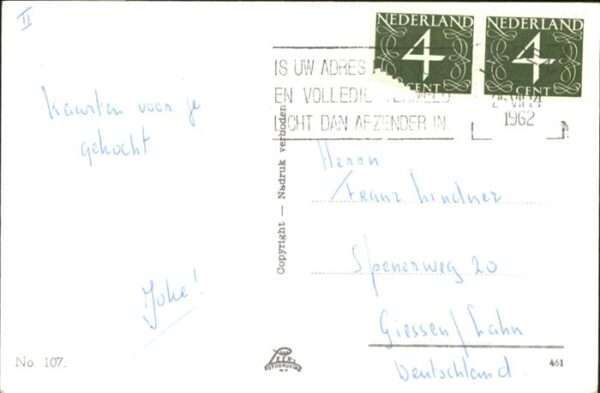 II
NEDERLAND
4
CENT
NEDERLAND
4
CENT
IS UW ADRES
EN VOLLEDIG VERMELD
LICHT DAN AFZENDER IN
1962
kaarten voor je
gekocht
Joke!
Copyright — Nadruk verboden
Herrn
Franz Lindner
Spenerweg 20
Giessen/Lahn
Deutschland
No. 107.
461